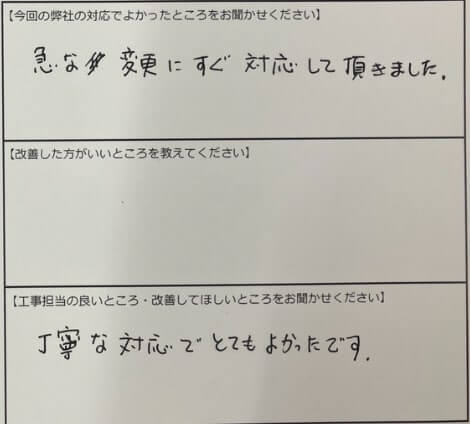 【今回の弊社の対応でよかったところをお聞かせください】
急な変更にすぐ対応して頂きました.
【改善した方がいいところを教えてください】
【工事担当の良いところ・改善してほしいところをお聞かせください】
丁寧な対応でとてもよかったです.